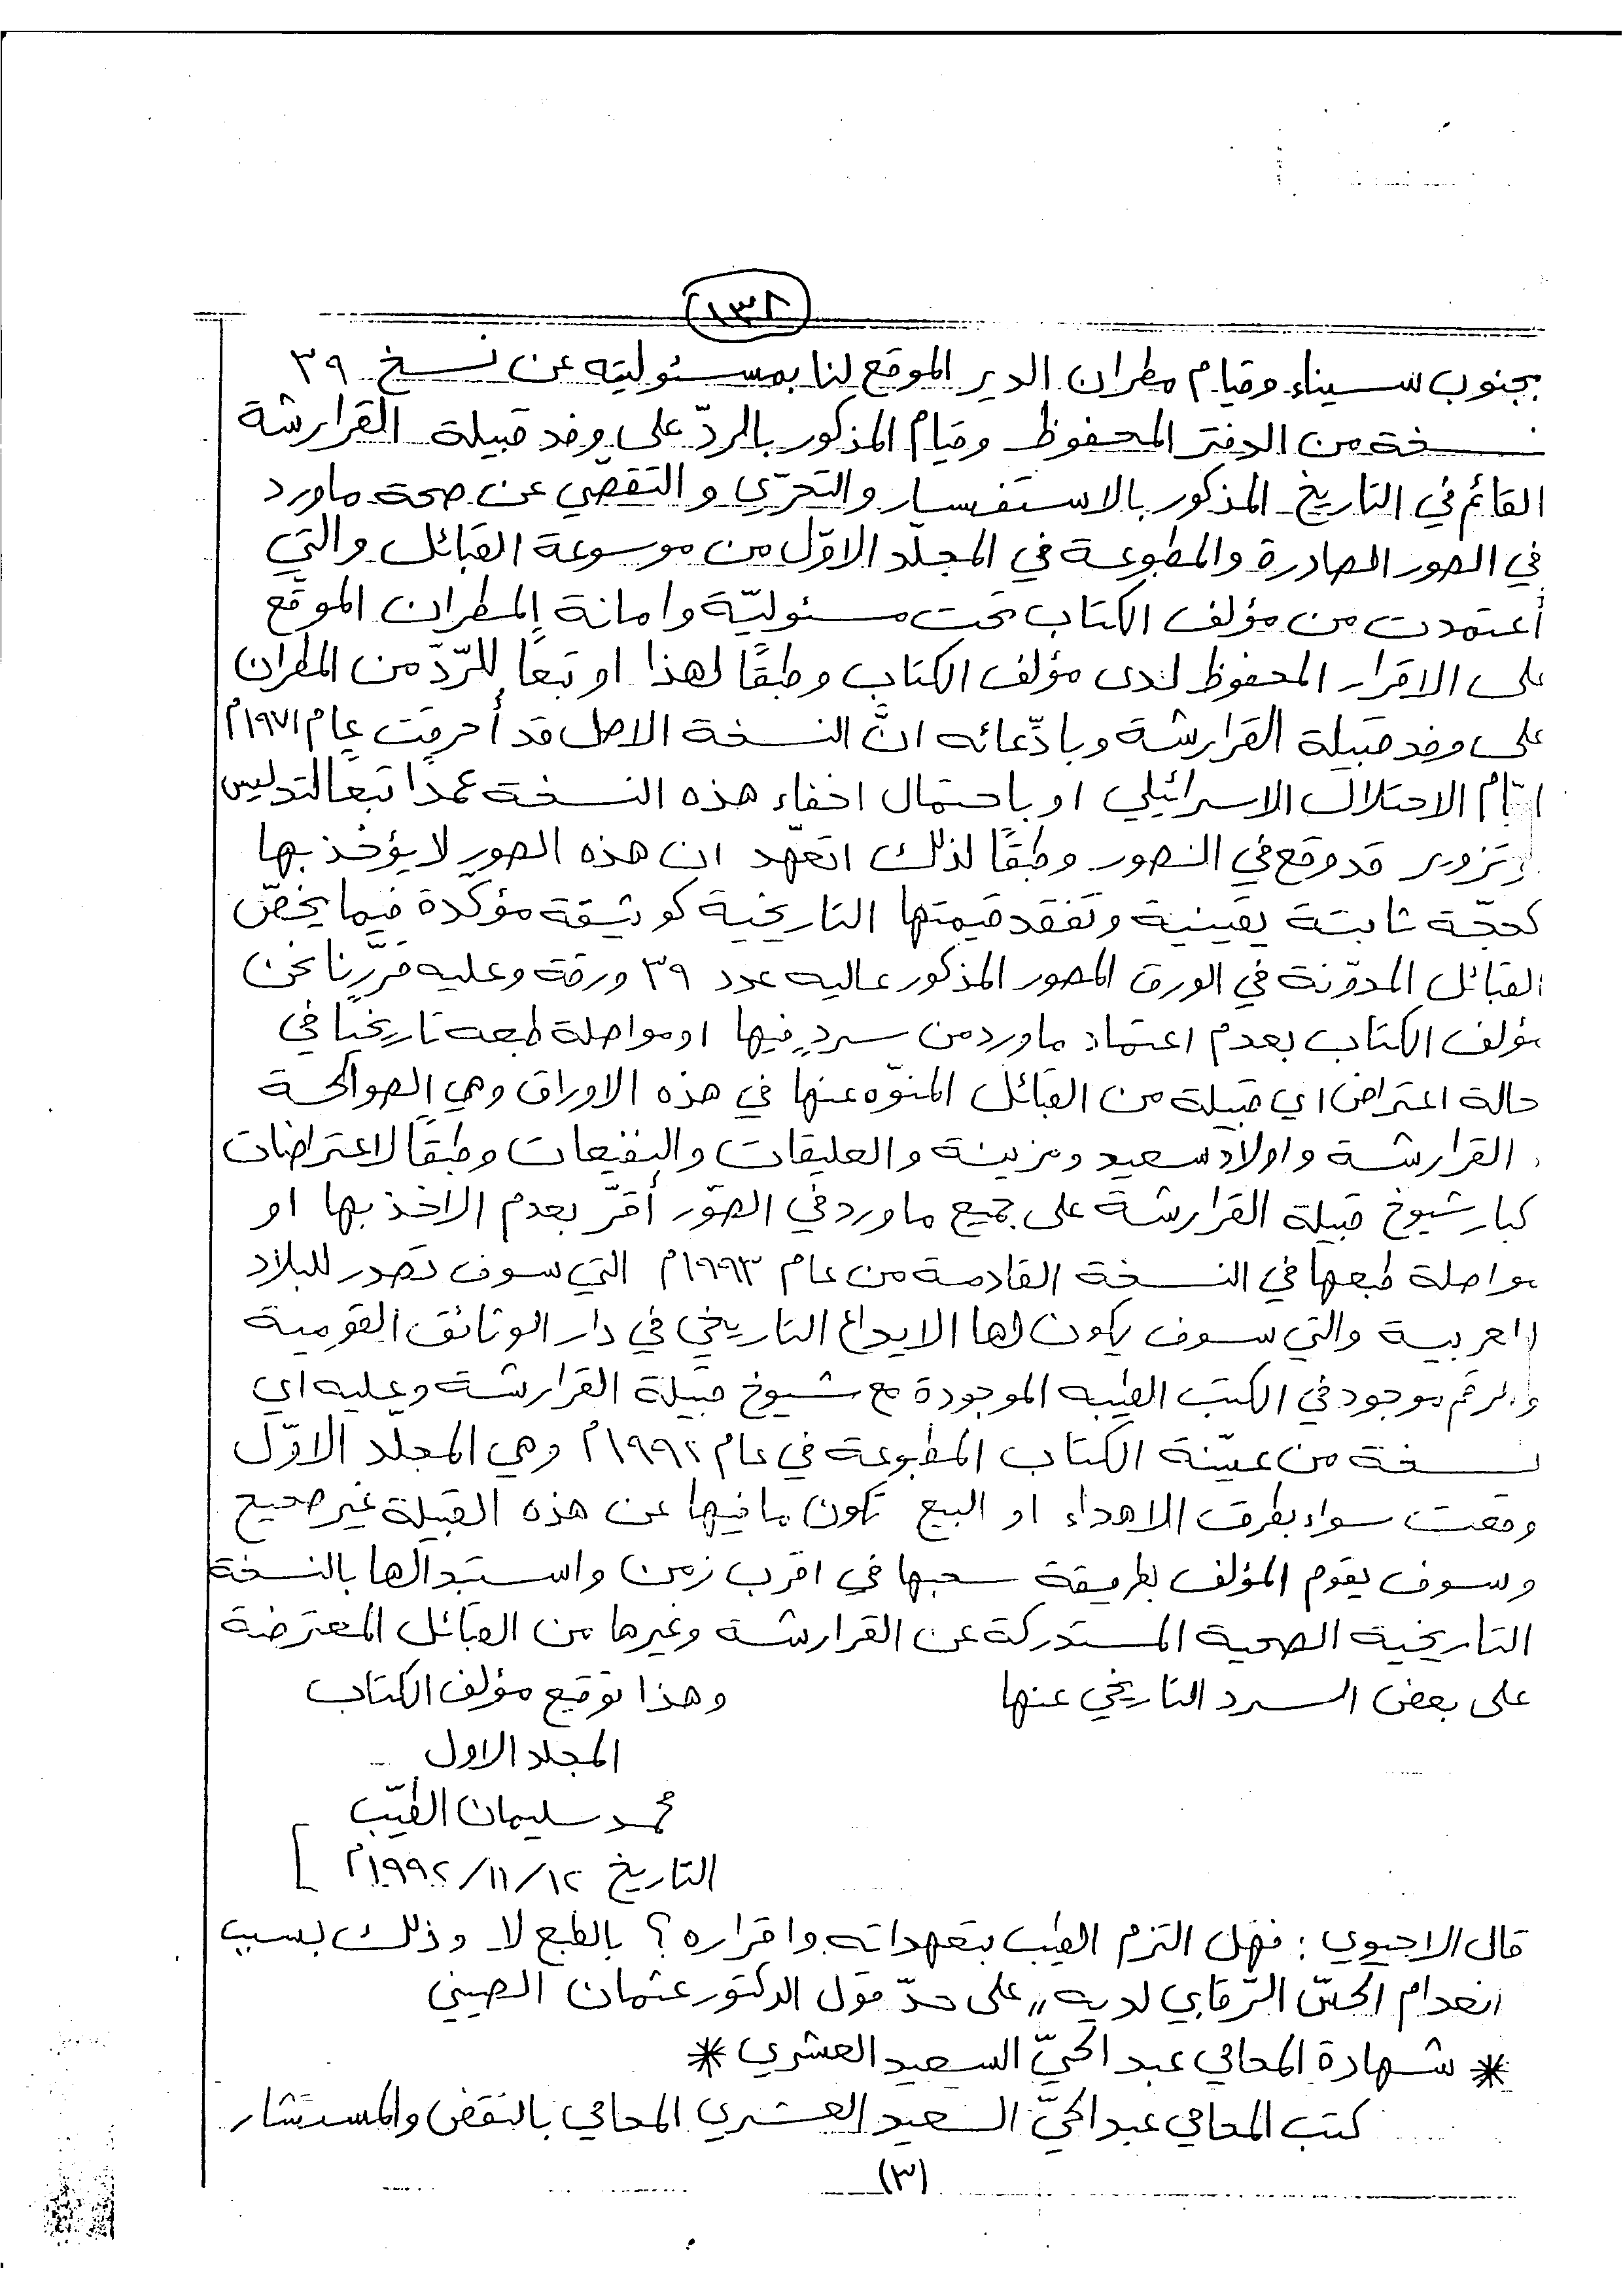 (١٣٨)
بجنوب سيناء وقيام مطران الدير الموقع لنا بمسئوليته عن نسخ ٣٩
نسخة من الدفتر المحفوظ وقيام المذكور بالردّ على وفد قبيلة القرارشة
القائم في التاريخ المذكور بالاستفسار والتحرّي والتقصّي عن صحة ماورد
في الصور الصادرة والمطبوعة في المجلّد الاوّل من موسوعة القبائل والتي
أعتمدت من مؤلف الكتاب تحت مسئوليّة وامانة المطران الموقّع
على الاقرار المحفوظ لدى مؤلف الكتاب وطبقًا لهذا او تبعًا للرّدّ من المطران
على وفد قبيلة القرارشة وبادّعائه انّ النسخة الاصل قد أحرقت عام ١٩٧١م
ايّام الاحتلال الاسرائيلي او باحتمال اخفاء هذه النسخة عمدًا تبعًا لتدليس
او تزوير قد وقع في الصور وطبقًا لذلك اتعهّد ان هذه الصور لا يؤخذ بها
كحجّة ثابتة يقينية وتفقد قيمتها التاريخية كوثيقة مؤكّدة فيما يخصّ
القبائل المدوّنة في الورق المصور المذكور عاليه عدد ٣٩ ورقة وعليه قرّرنا نحن
مؤلف الكتاب بعدم اعتماد ماورد من سردٍ فيها او مواصلة طبعه تاريخيًا في
حالة اعتراض اي قبيلة من القبائل المنوّه عنها في هذه الاوراق وهي الصوالحة
القرارشة واولاد سعيد ومزينة والعليقات والنفيعات وطبقًا لاعتراضات
كبار شيوخ قبيلة القرارشة على جميع ماورد في الصّور أقرّ بعدم الاخذ بها او
مواصلة طبعها في النسخة القادمة من عام ١٩٩٣م التي سوف تصدر للبلاد
العربية والتي سوف يكون لها الايداع التاريخي في دار الوثائق القومية
والرقم موجود في الكتب الطيبه الموجودة مع شيوخ قبيلة القرارشة وعليه اي
نسخة من عيّنة الكتاب المطبوعة في عام ١٩٩٢م وهي المجلّد الاوّل
وقعت سواء بطرق الاهداء او البيع تكون ما فيها عن هذه القبيلة غير صحيح
وسوف يقوم المؤلف بطريقة سحبها في اقرب زمن واستبدالها بالنسخة
التاريخية الصحية المستدركة عن القرارشة وغيرها من القبائل المعترضة
على بعض السرد التاريخي عنها وهذا توقيع مؤلف الكتاب
المجلد الاول
محمد سليمان الطيّب
التاريخ ١٢/١١/١٩٩٢م ]
قال الاحيوي : فهل التزم الطيب بتعهداته واقراره ؟ بالطبع لا وذلك بسبب
انعدام الحسّ الرّقابي لديه ,, على حدّ قول الدكتور عثمان الصيني
* شهادة المحامي عبد الحيّ السعيد العشري *
كتب المحامي عبد الحيّ السعيد العشري المحامي بالنقض والمستشار
(٣)